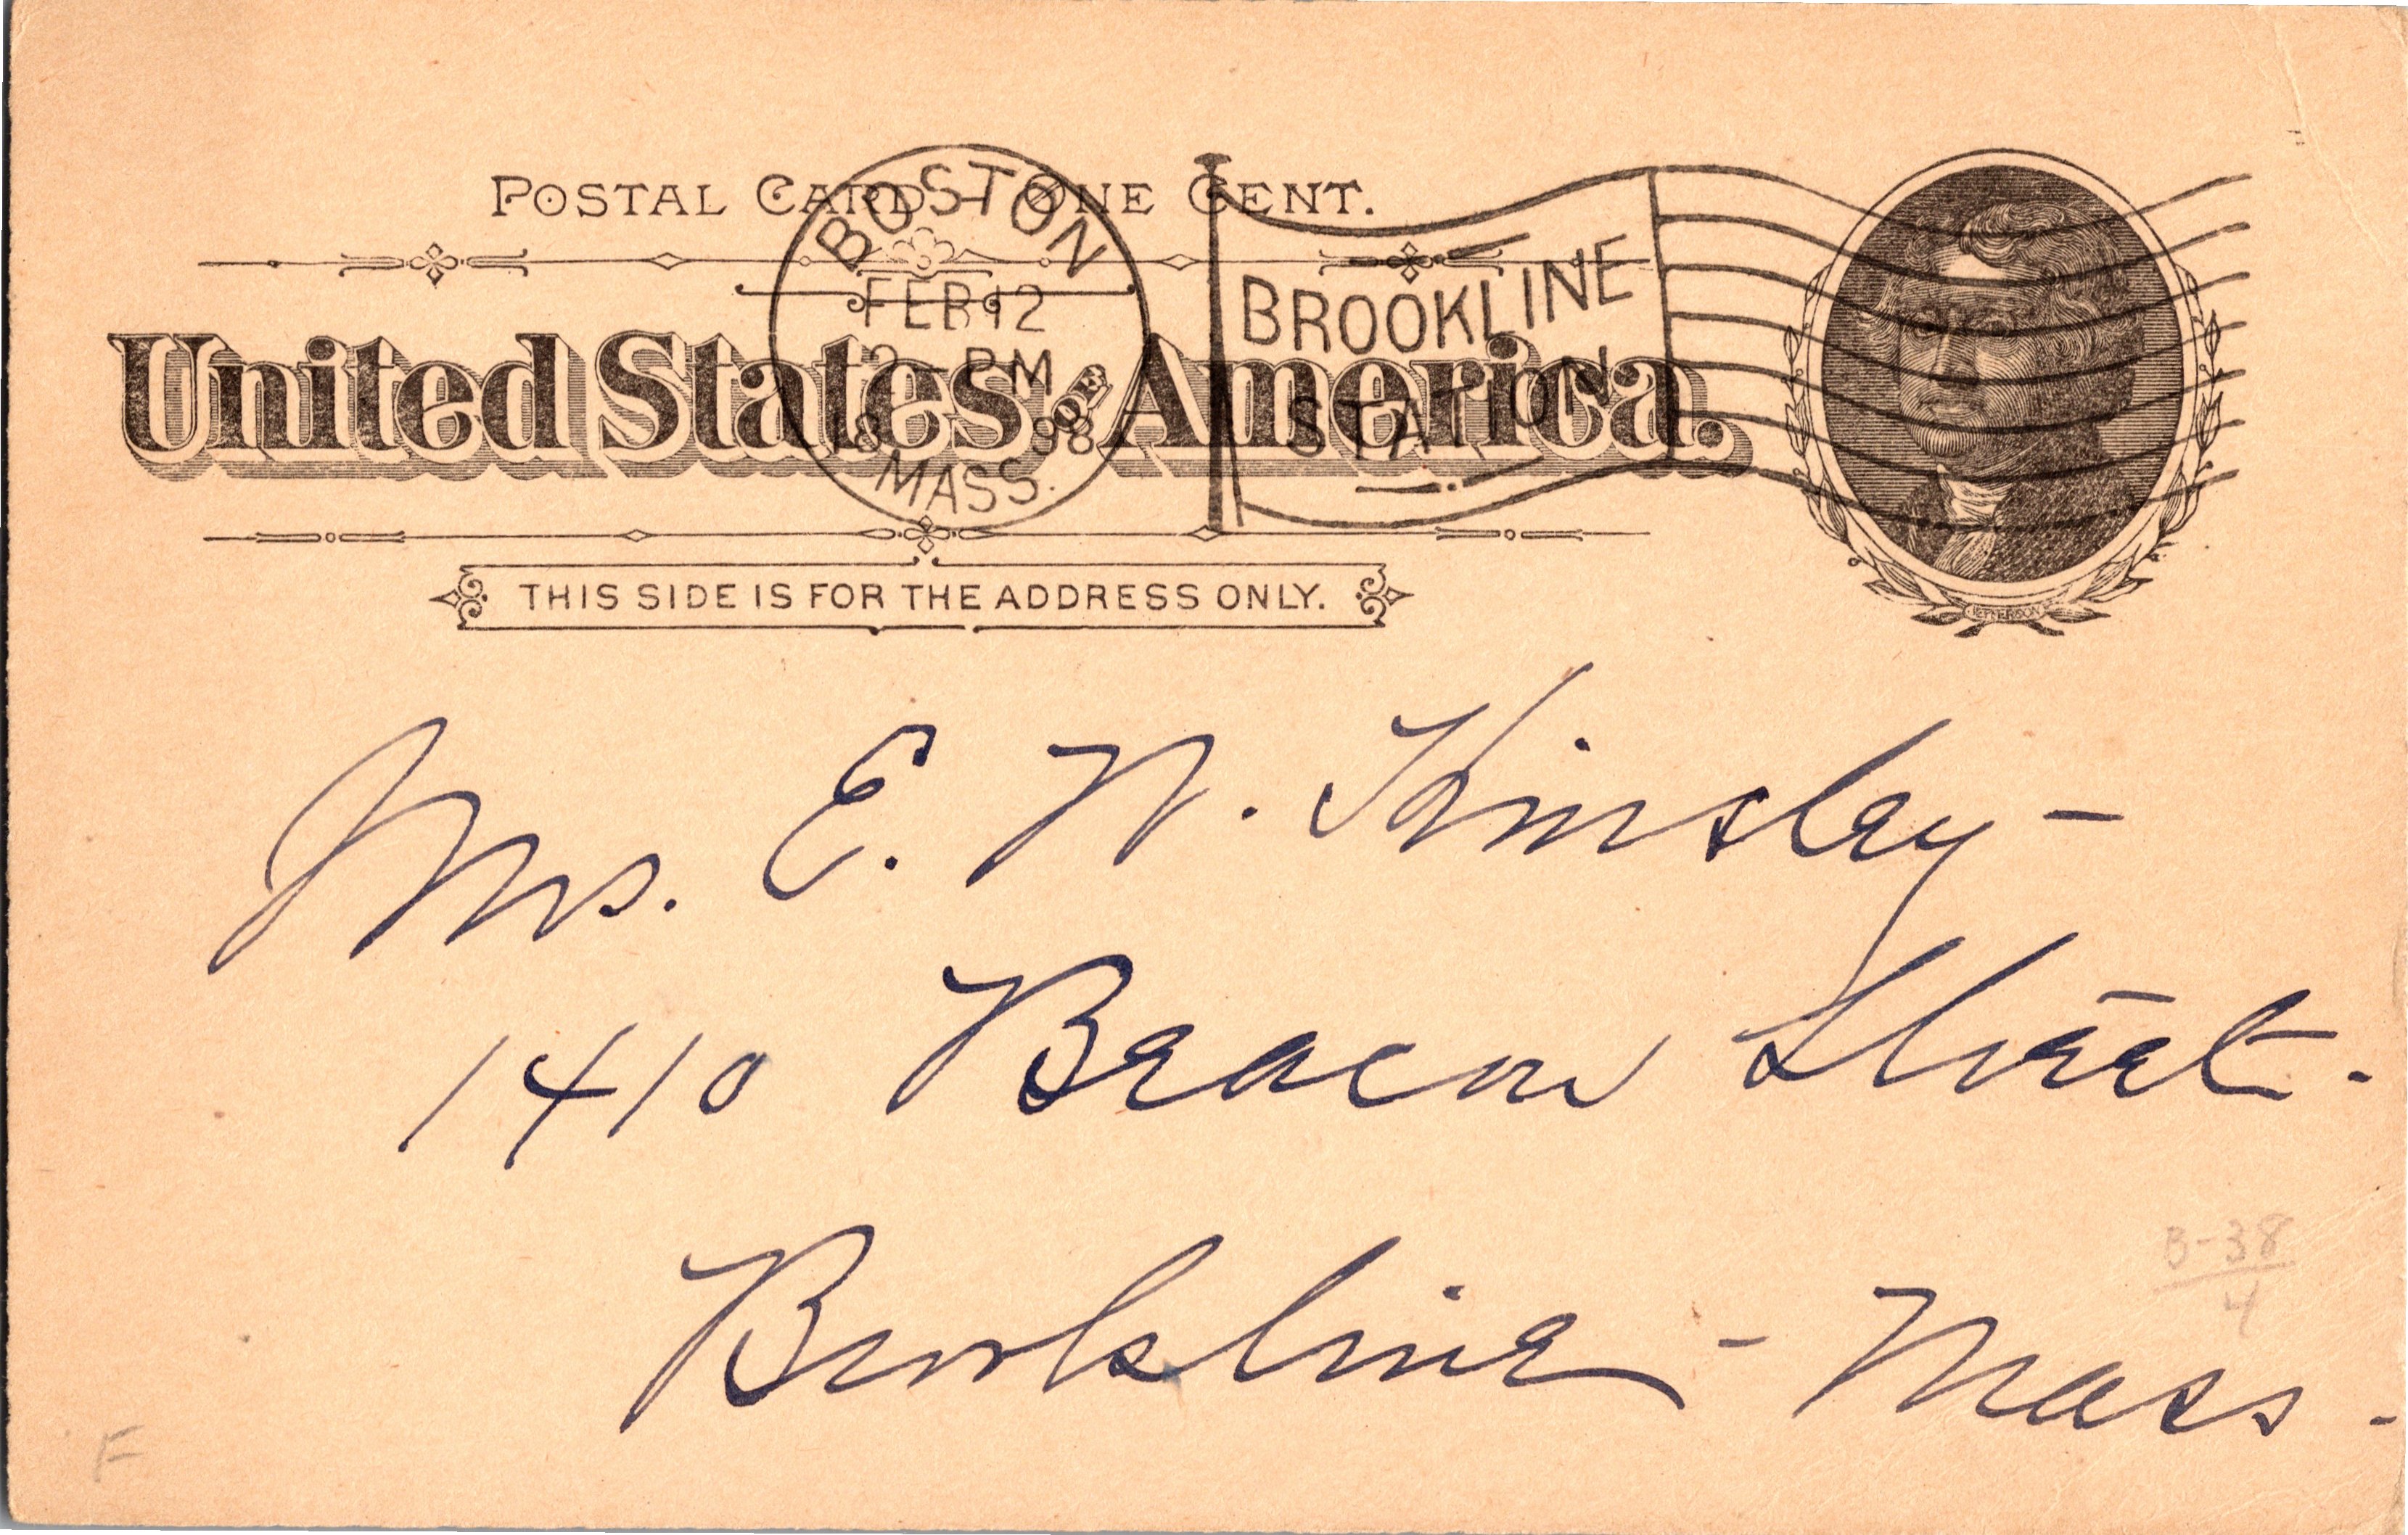 POSTAL CARD – ONE CENT.
BOSTON
FEB 12
2 – PM
18 98
MASS.
BROOKLINE
STATION
United States of America.
JEFFERSON
THIS SIDE IS FOR THE ADDRESS ONLY.
Mrs. E. W. Kinsley –
1410 Beacon Street.
Brookline – Mass.
B-38
4
F